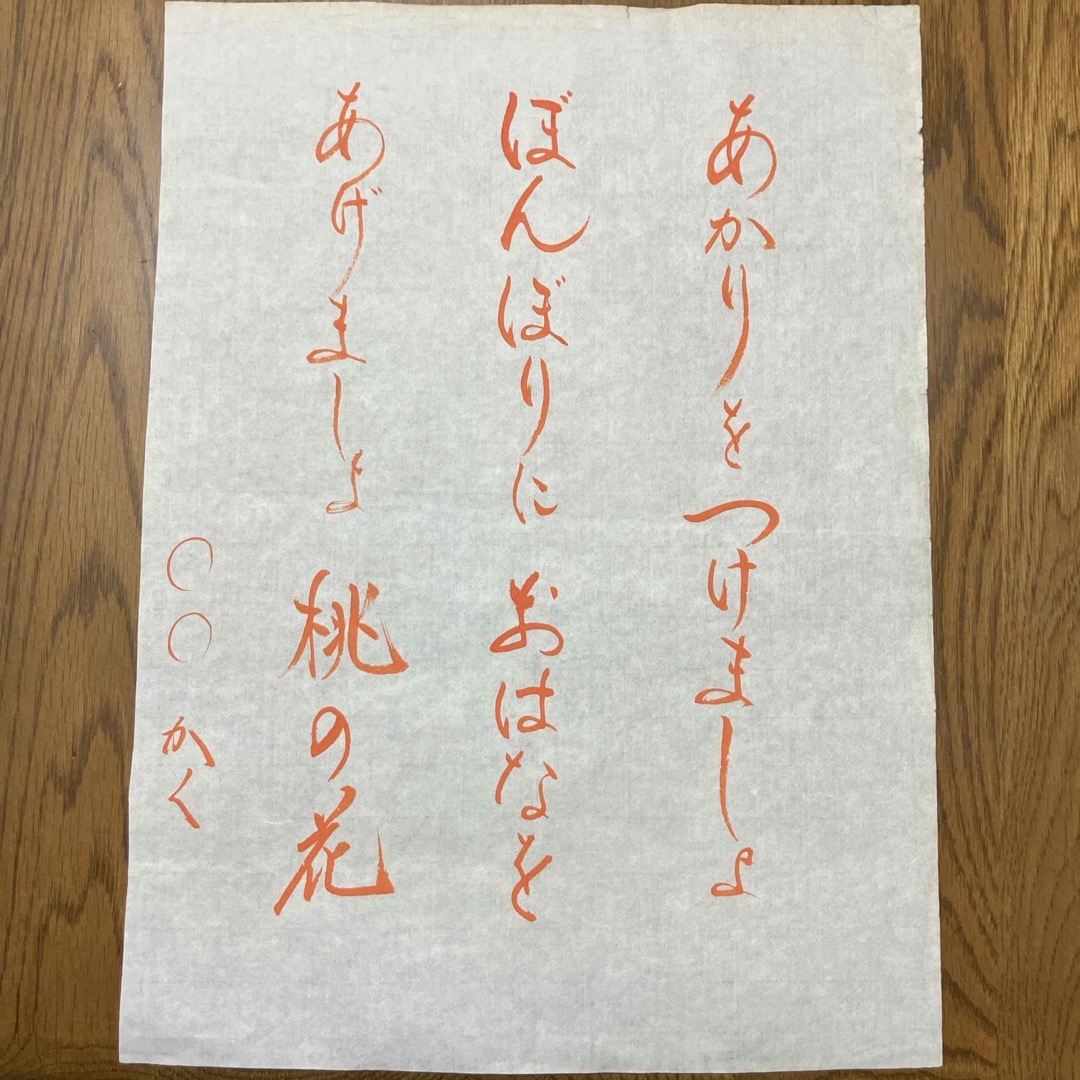 あかりをつけましょ
ぼんぼりに おはなを
あげましょ 桃の花
〇〇 かく